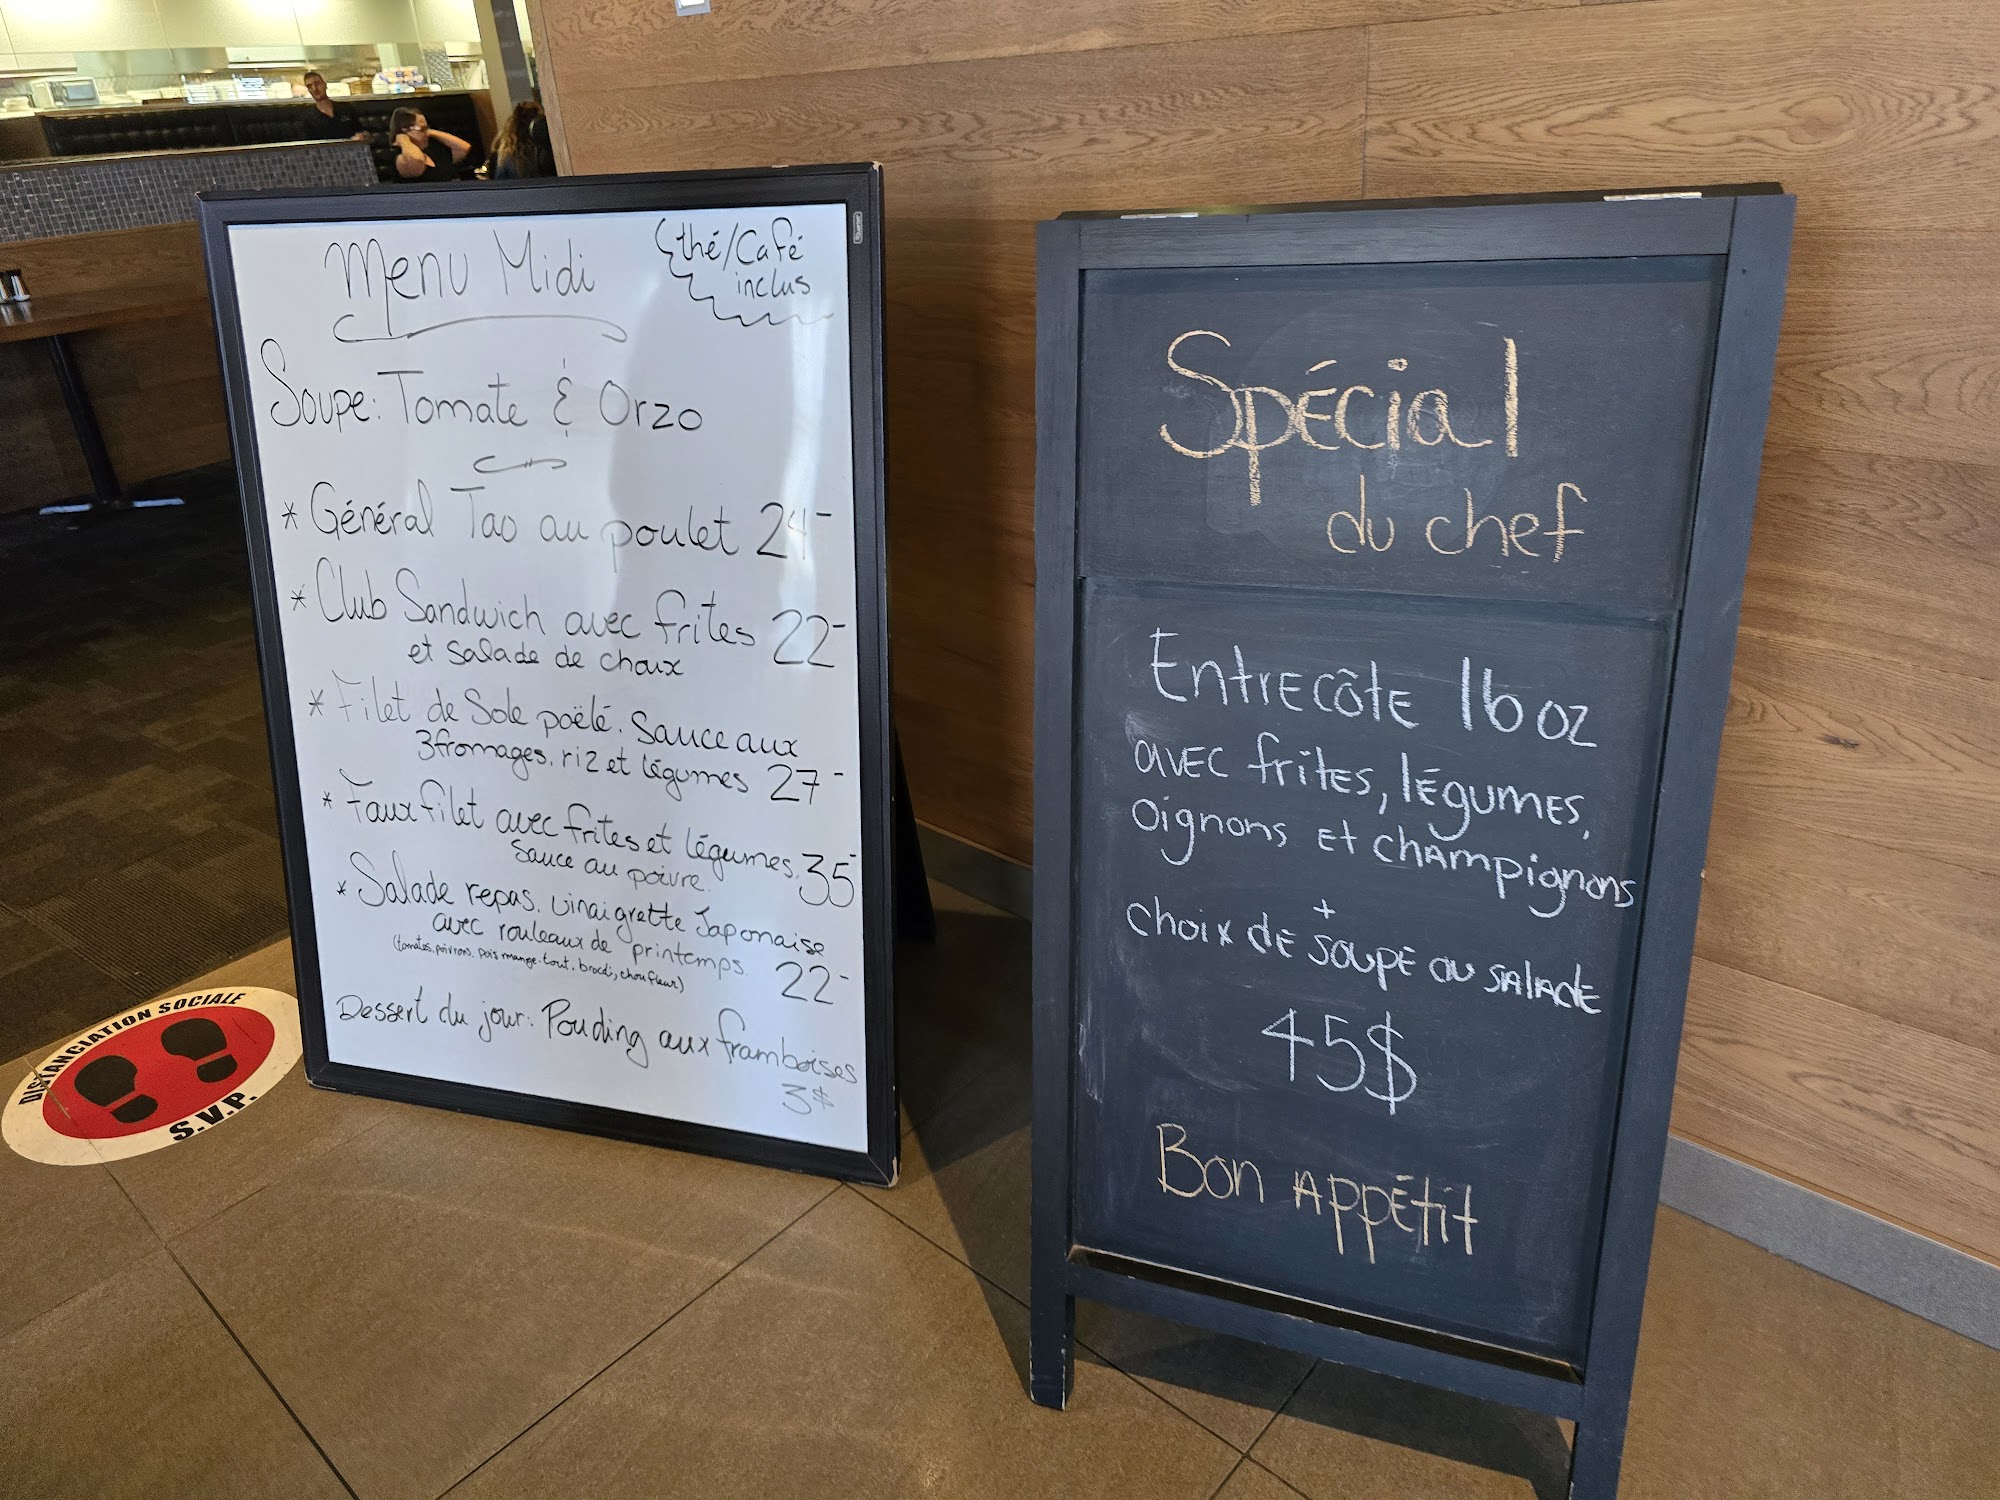 Menu Midi
thé/Café
inclus
Soupe: Tomate & Orzo
* Général Tao au poulet 24-
* Club Sandwich avec frites 22-
et salade de choux
* Filet de Sole poëlé. Sauce aux
3 fromages. riz et légumes 27-
* Faux filet avec frites et légumes. 35-
Sauce au poivre.
* Salade repas. Vinaigrette Japonaise
avec rouleaux de printemps. 22-
(tomates, poivrons, pois mange-tout, brocoli, chou fleur)
Dessert du jour: Pouding aux framboises
3$
DISTANCIATION SOCIALE
S.V.P.
Spécial
du chef
Entrecôte 16 oz
avec frites, légumes,
oignons et champignons
+
choix de soupe ou salade
45$
Bon appétit